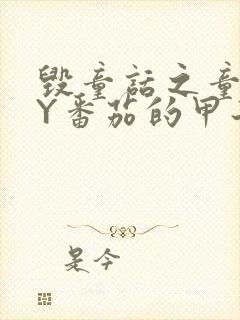 毁童话之童
Y番茄的甲
是今